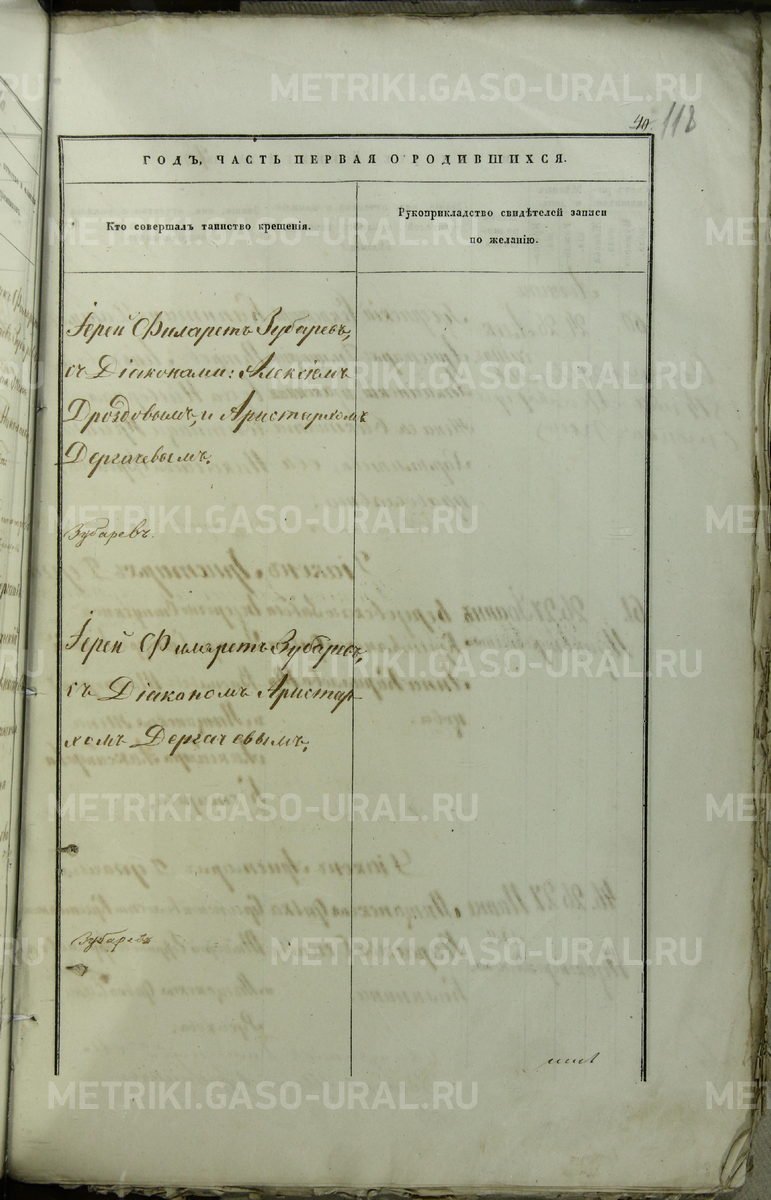 METRIKI.GASO-URAL.RU
118
ГОДЪ, ЧАСТЬ ПЕРВАЯ О РОДИВШИХСЯ.
Кто совершалъ таинство крещенія.
Рукоприкладство свидѣтелей записи
по желанію.
Іерей Филаретъ Зубаревъ,
съ Діаконами: Алексіемъ
Дроздовымъ, и Аристархомъ
Дергачевымъ.
Зубаревъ.
Іерей Филаретъ Зубаревъ,
съ Діакономъ Аристар
хомъ Дергачевымъ.
Зубаревъ